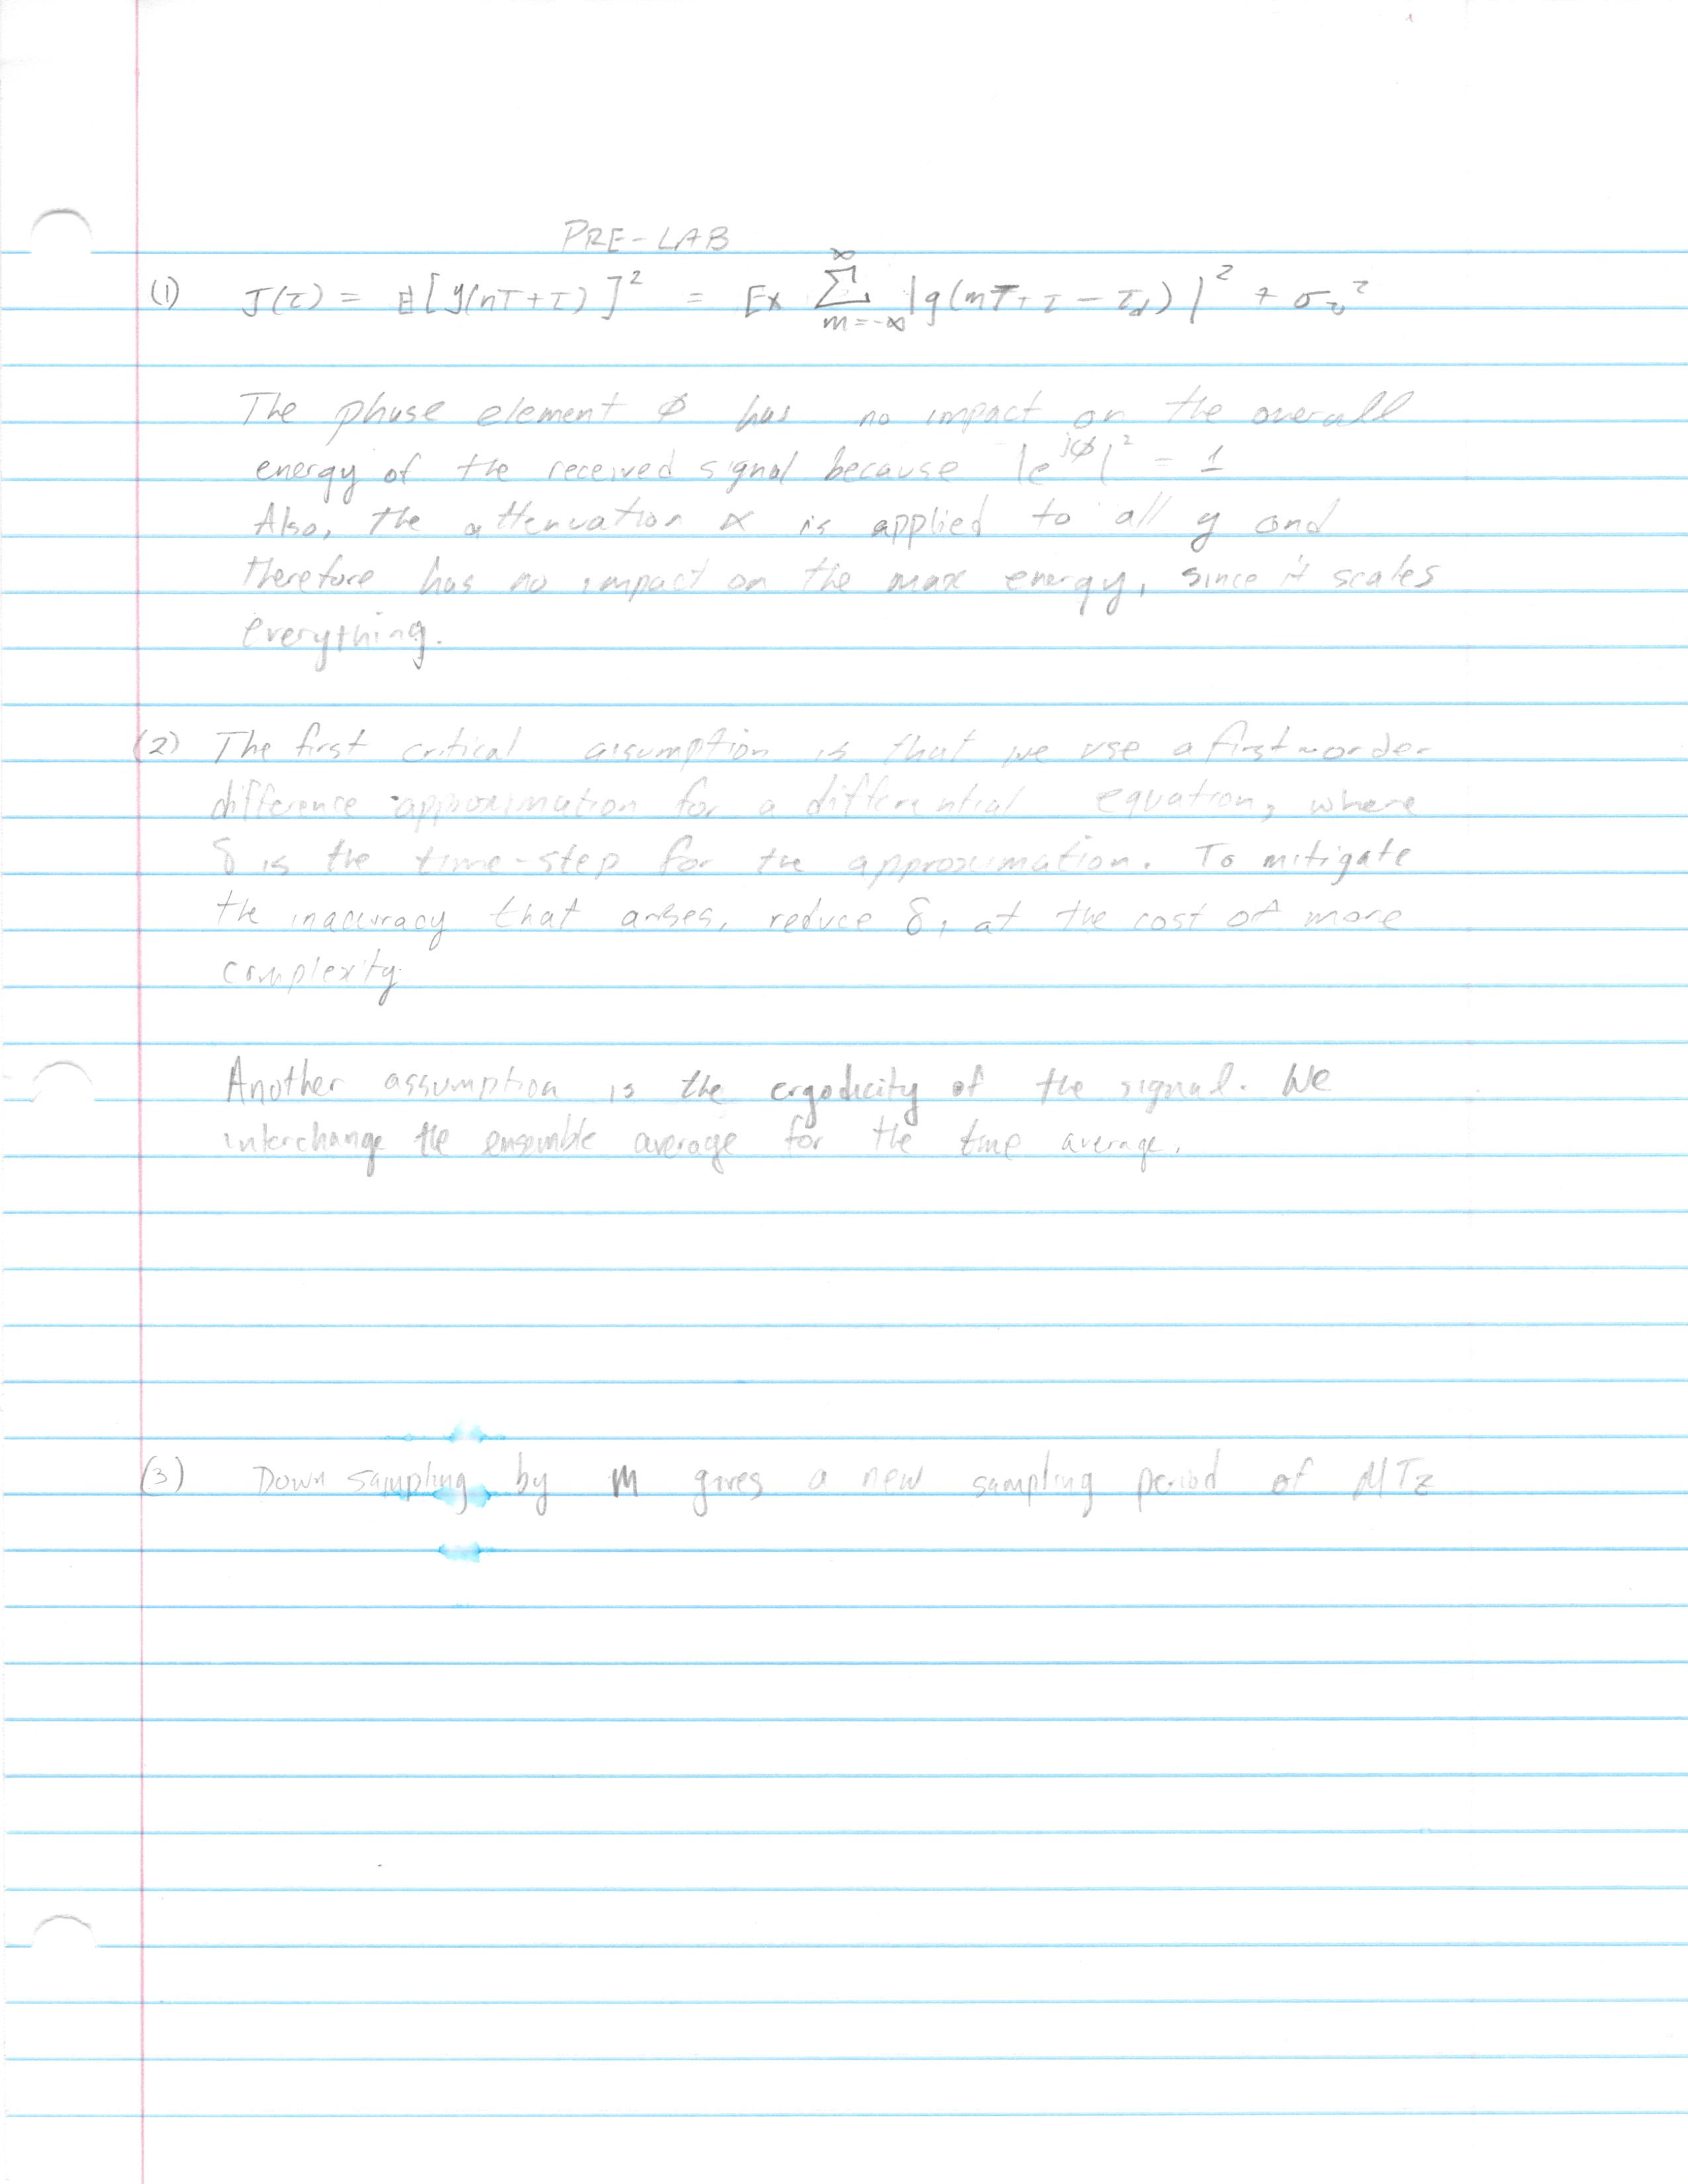 PRE-LAB
(1) J(τ) = E[y(nT+τ)]² = Ex ∑_{m=-∞}^{∞} |g(mT+τ-τ_d)|² + σ_v²
The phase element φ has no impact on the overall
energy of the received signal because |e^{jφ}|² = 1
Also, the attenuation α is applied to all y and
therefore has no impact on the max energy, since it scales
everything.
(2) The first critical assumption is that we use a first-order
difference approximation for a differential equation, where
δ is the time-step for the approximation. To mitigate
the inaccuracy that arises, reduce δ, at the cost of more
complexity.
Another assumption is the ergodicity of the signal. We
interchange the ensemble average for the time average.
(3) Down sampling by M gives a new sampling period of MTz